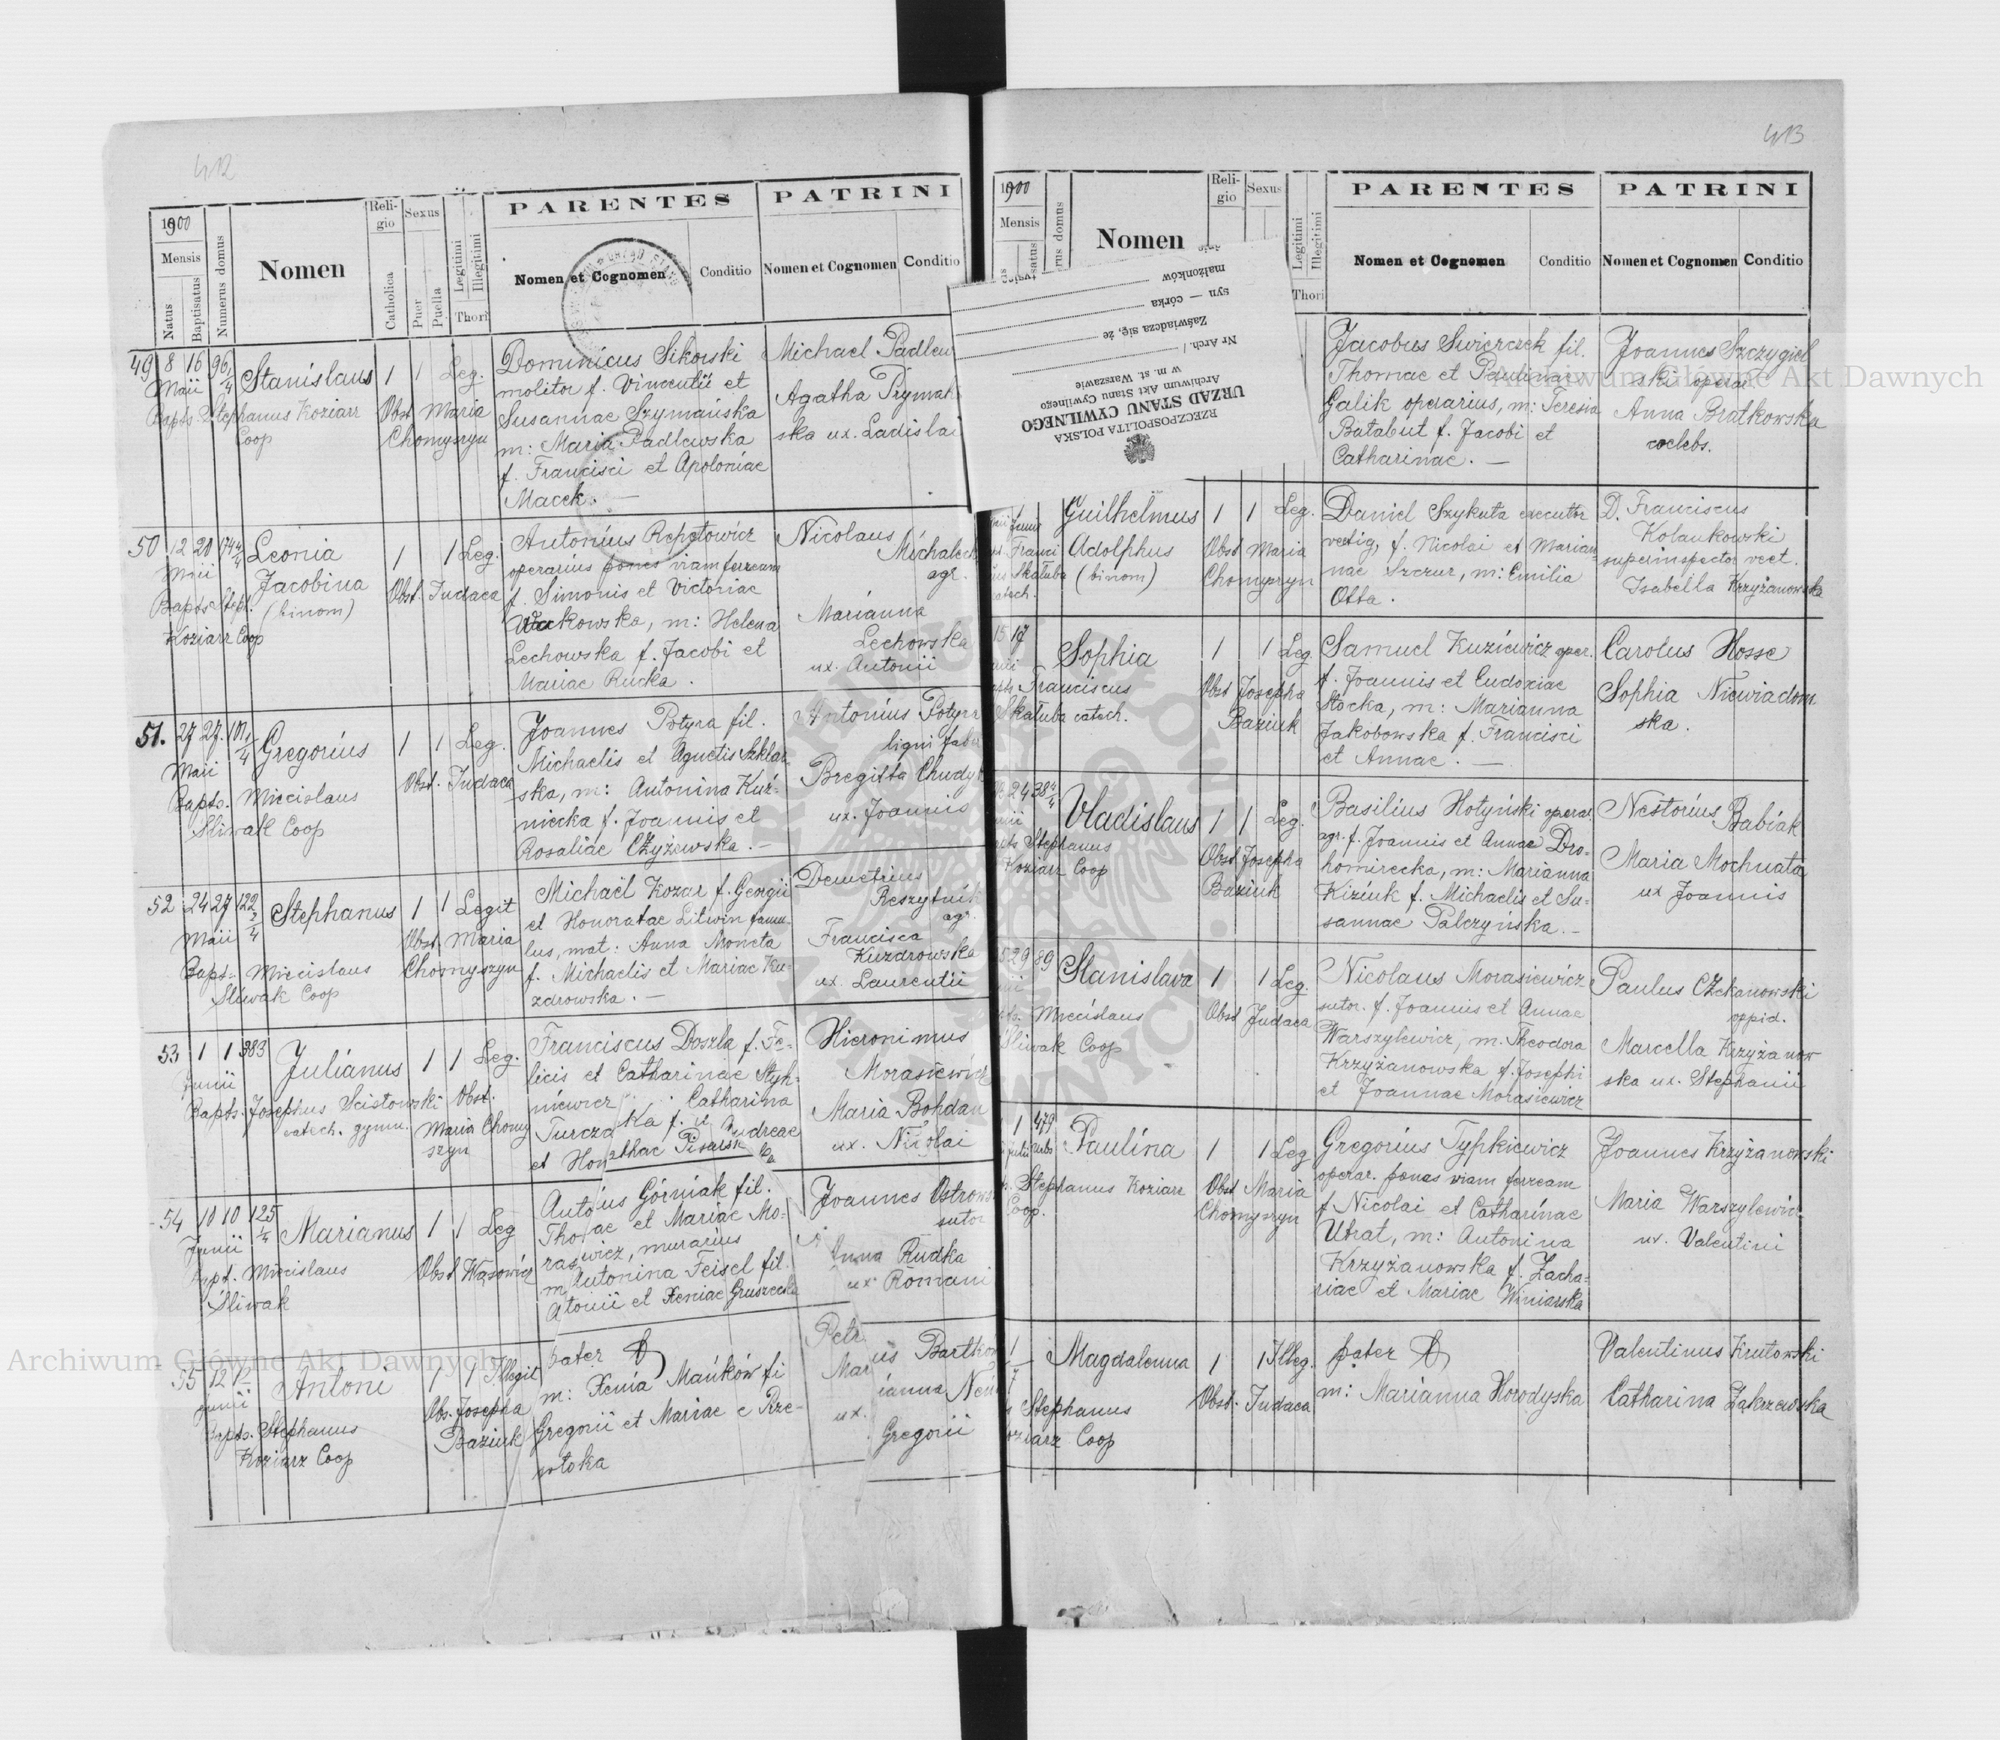 412
1900
Mensis
Natus
Baptisatus
Numerus domus
Nomen
Religio
Catholica
Sexus
Puer
Puella
Legitimi
Illegitimi
Thori
PARENTES
Nomen et Cognomen
Conditio
PATRINI
Nomen et Cognomen
Conditio
49 8 16 96/4 Stanislaus 1 1 Leg.
Maii
Bapts. Stephanus Koziarz Coop
Obst Maria Chomyszyn
Dominicus Sikorski
molitor f. Vincentii et
Susannae Szymańska
m: Maria Padlewska
f. Francisci et Apoloniae
Macek. —
Michael Padlew
Agatha Prymak
ska ux. Ladislai
50 12 20 Leonia 1 1 Leg.
Maii
Jacobina
(binom)
Bapts Steph. Koziarz Coop
Obst. Judaca
Antonius Repotowicz
operarius penes viam ferream
f. Simonis et Victoriae
Wakowska, m: Helena
Lechowska f. Jacobi et
Mariae Rucka.
Nicolaus
Michalecki
agr.
Marianna
Lechowska
ux. Antonii
51. 27 27. Gregorius 1 1 Leg.
Maii
Bapts. Miecislaus
Śliwak Coop
Obst. Judaca
Joannes Potyra fil.
Michaelis et Agnetis Szklar
ska, m: Antonina Kuź-
niecka f. Joannis et
Rosaliae Czyżewska. —
Antonius Potyra
ligni fab
Bregitta Chudy
ux. Joannis
52 24 27 122/4 Stephanus 1 1 Legit
Maii
Bapts. Miecislaus
Śliwak Coop
Obst. Maria
Chomyszyn
Michaël Kozar f. Georgii
et Honoratae Litwin famu-
lus, mat: Anna Moneta
f. Michaelis et Mariae Ku-
zdrowska. —
Demetrius
Reszytnik
agr.
Francisca
Kuzdrowska
ux. Laurentii
53 1 1 383 Julianus 1 1 Leg.
Junii
Bapts. Josephus Scistowski
catech. gymn.
Obst.
Maria Chomy
szyn
Franciscus Doszla f. Fe-
licis et Catharinae Stych-
niewicz Catharina
Turcza ka f. Andreae
et Hon
Hieronimus
Morasiewicz
Maria Bohdan
ux. Nicolai
54 10 10 125/4 Marianus 1 1 Leg
Junii
Bapt. Miecislaus
Śliwak
Obst Wąsowicz
Antonius Górniak fil.
Tho ae et Mariae Mo-
ras wicz, murarius
m Antonina Feisel fil.
Atonii et Xeniae Gruszecka
Joannes Ostrows
sutor
Anna Rudka
ux Romani
55 12 Antoni 1 1 Illegit
Junii
Bapts. Stephanus
Koziarz Coop
Obs. Josepha
Baziuk
pater
m: Xenia Mańków fi
Gregorii et Mariae e Prze-
potoka
Petr us Bartków
Mar ianna
ux. Gregorii
413
1900
Mensis
Nomen
Religio
Sexus
Legitimi
Illegitimi
Thori
PARENTES
Nomen et Cognomen
Conditio
PATRINI
Nomen et Cognomen
Conditio
RZECZPOSPOLITA POLSKA
URZĄD STANU CYWILNEGO
Archiwum Akt Stanu Cywilnego
w m. st. Warszawie
Nr Arch. /
Zaświadcza się, że
syn — córka
małżonków
Jacobus Swierczek fil.
Thomae et Paulinae
Galik operarius, m: Teresia
Batabut f. Jacobi et
Catharinae. —
Joannes Szczygiel
ski operar
Anna Bratkowska
coelebs.
Guilhelmus 1 1 Leg.
Adolphus
(binom)
Franci
Skałuba
catech.
Obst Maria
Chomyszyn
Daniel Szykuta executor
vectig, f. Nicolai et Marian-
nae Szczur, m: Emilia
Otta.
D. Franciscus
Kolankowski
superinspector vect.
Isabella Krzyżanowska
15 17 Sophia 1 1 Leg
Franciscus
Skałuba catech.
Obst Josepha
Baziuk
Samuel Kuziewicz oper.
f. Joannis et Eudoxiae
Stocka, m: Marianna
Jakobowska f. Francisci
et Annae. —
Carolus Hosse
Sophia Niewiadom
ska.
24 384/4 Vladislaus 1 1 Leg.
Stephanus
Koziarz Coop
Obst Josepha
Baziuk
Basilius Hotyński operar.
agr. f. Joannis et Annae Dro-
homirecka, m: Marianna
Kiziuk f. Michaelis et Su-
sannae Palczyńska. —
Nestorius Babiak
Maria Mochnata
ux Joannis
29 89 Stanislava 1 1 Leg.
Miecislaus
Śliwak Coop
Obst Judaca
Nicolaus Morasiewicz
sutor. f. Joannis et Annae
Warszylewicz, m. Theodora
Krzyżanowska f. Josephi
et Joannae Morasiewicz
Paulus Czekanowski
oppid.
Marcella Krzyżanow
ska ux. Stephanii
1 479 Paulina 1 1 Leg
Stephanus Koziarz
Coop.
Obst Maria
Chomyszyn
Gregorius Typkiewicz
operar. penes viam ferream
f Nicolai et Catharinae
Utrat, m: Antonina
Krzyżanowska f. Zacha-
riae et Mariae Winiarska
Joannes Krzyżanowski
Maria Warszylewicz
ux. Valentini
Magdalenna 1 1 Illeg.
Stephanus
Koziarz Coop
Obst. Judaca
pater
m: Marianna Horodyska
Valentinus Krutowski
Catharina Zakrzewska
Archiwum Główne Akt Dawnych
Archiwum Główne Akt Dawnych